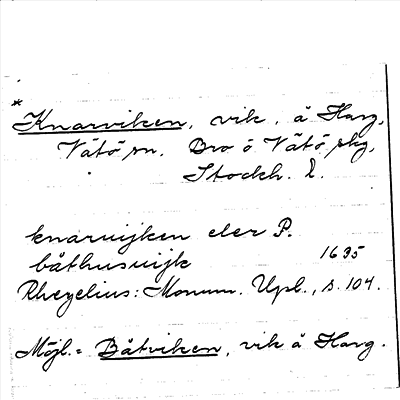 *
Knarviken, vik, å Harg,
Vätö sn. Bro o Vätö skg,
Stockh. l.
knarvijken eler P.
båthusvijk 1635
Rhezelius: Monum. Upl., s. 104.
Möjl. = Båtviken, vik å Harg.